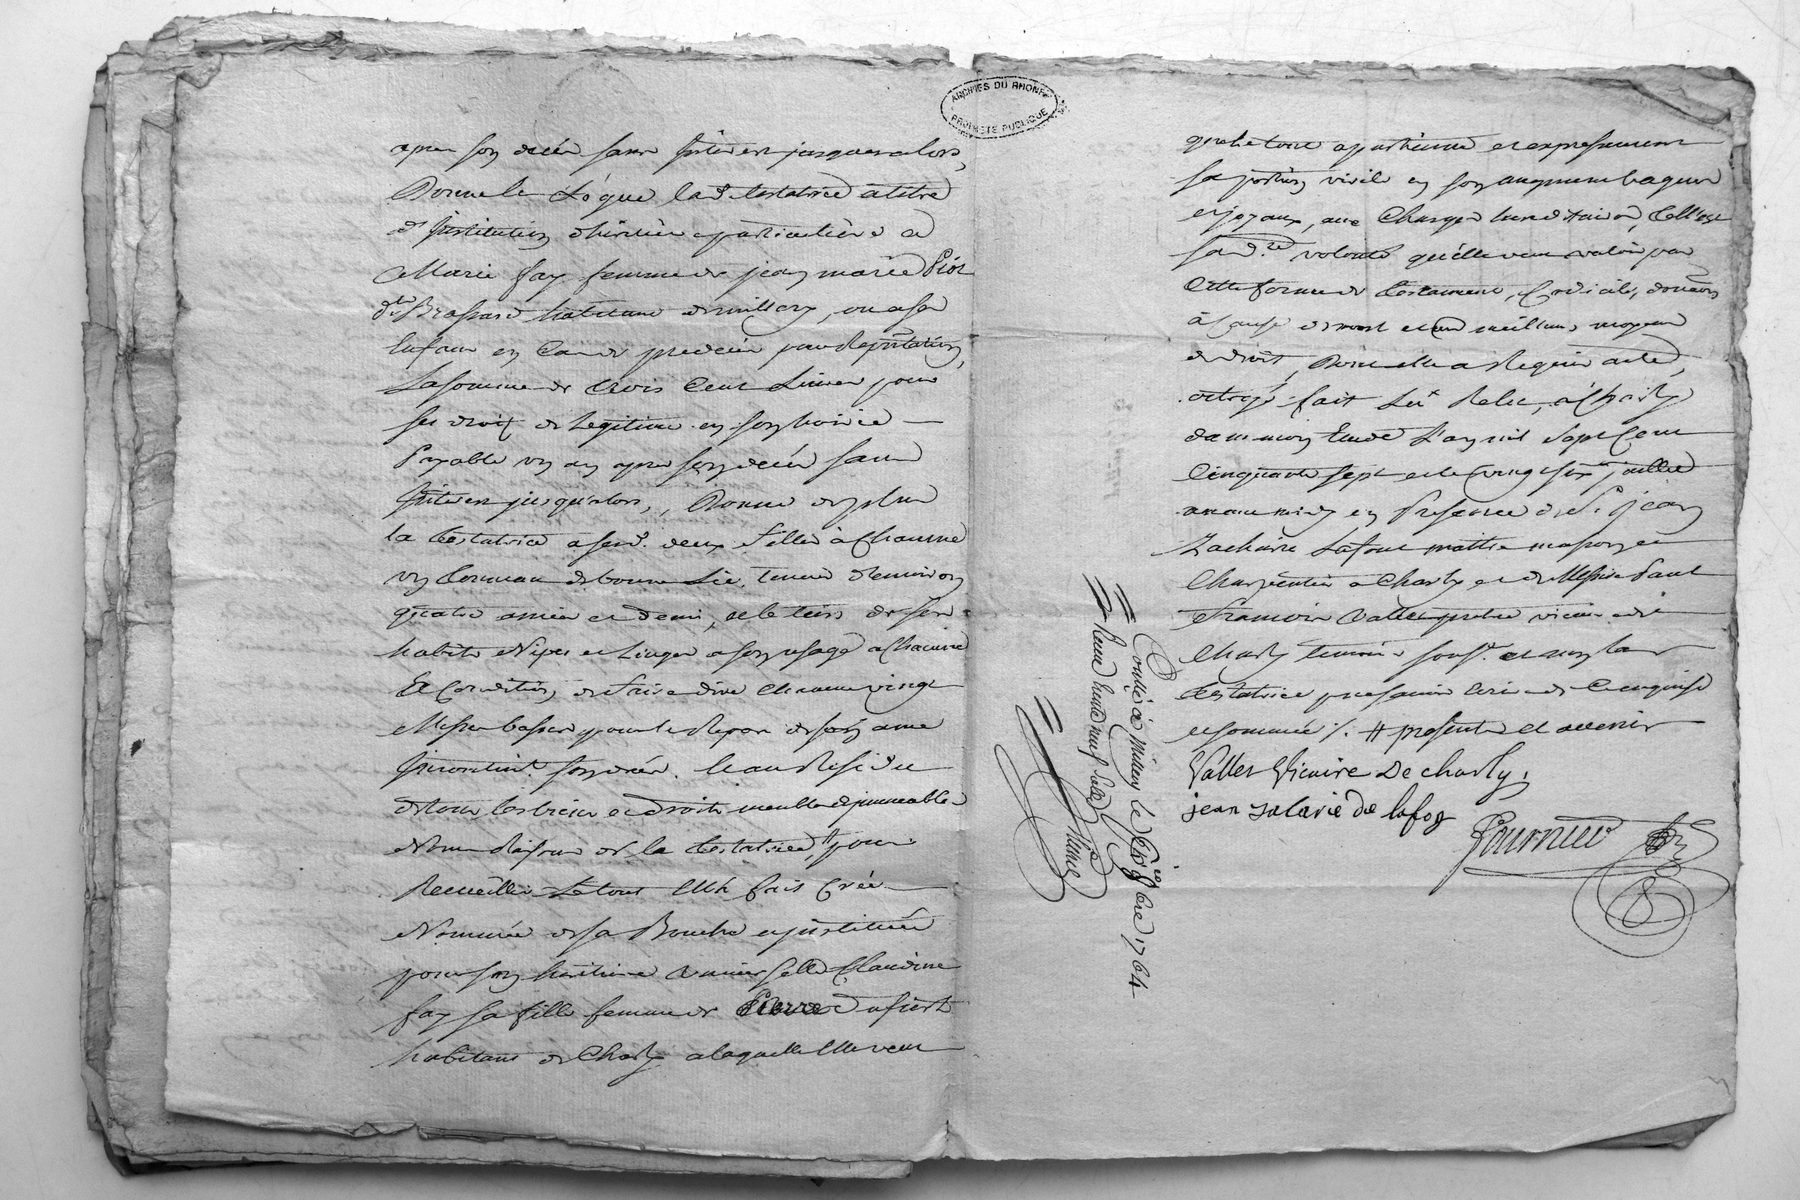 ARCHIVES DU RHONE
PROPRIETE PUBLIQUE
apres son deces sans interest jusques alors,
Donne et Legue lad. testatrice a titre
d'institution particuliere a
Marie fay femme de jean marie Piot
dit Brossard habitant de millery, ou a ses
enfans en cas de predeces par Representation,
La somme de trois Cent Livres pour
ses droit de Legitime en son hoirie
Payable un an apres son deces sans
interest jusqu'alors, Donne de plus
la testatrice a sesd. deux filles a Chacune
un tonneau de bonne Lie, tenue d'environ
quatre anées et demi, et le tiers de ses
habits Nipes et Linges a son usage a Chacune
Et Condition de faire dire Chacune vingt
Messes basses pour le Repos de son ame
incontint. son deces. Et au Residu
de tous ses biens et droits meubles et immeubles
Noms Raisons de la testatrice # pour
Recueillir Le tout Elle fait Crée
Nommée de sa Bouche et institue
pour son heritiere universelle Claudine
fay sa fille femme de Pierre
habitant de Charly a laquelle Elle veut
que le tout appartienne et expressement
sa portion virile en son augment bagues
et joyaux, aux Charges hereditaires, Telle est
sa d.re volonté qu'elle veut valoir par
Cette forme de testament, Codicile, donation
à Cause de mort et au meilleur moyen
de droit, Dont elle a Requis acte,
octroyé fait Leu Relu, a Charly
dans mon Etude L'an mil Sept Cent
Cinquante sept et le vingt six juillet
avant midy en Presence de S. jean
Zacharie Lafont maitre masson et
Charpentier a Charly et de Messire Paul
Francois Vallet pretre vicaire dud.
Charly temoins sous. et non la
testatrice pour ne savoir ecrire de Ce enquise
et sommée /. # presents et avenir
Vallet Vicaire De charly,
jean de lafon
Fournier
Controllé à millery le 1764
Reçu